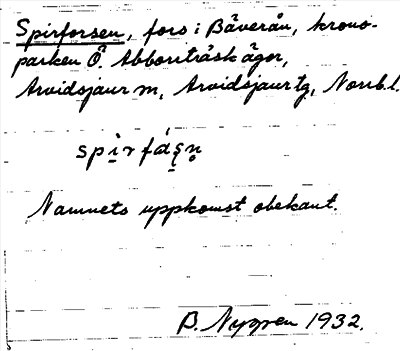 Spirforsen, fors i Bäverån, krono-
parken Ö. Abborrträsk ägor,
Arvidsjaur sn, Arvidsjaur tg, Norrb. l.
Namnets uppkomst obekant.
B. Nygren 1932.